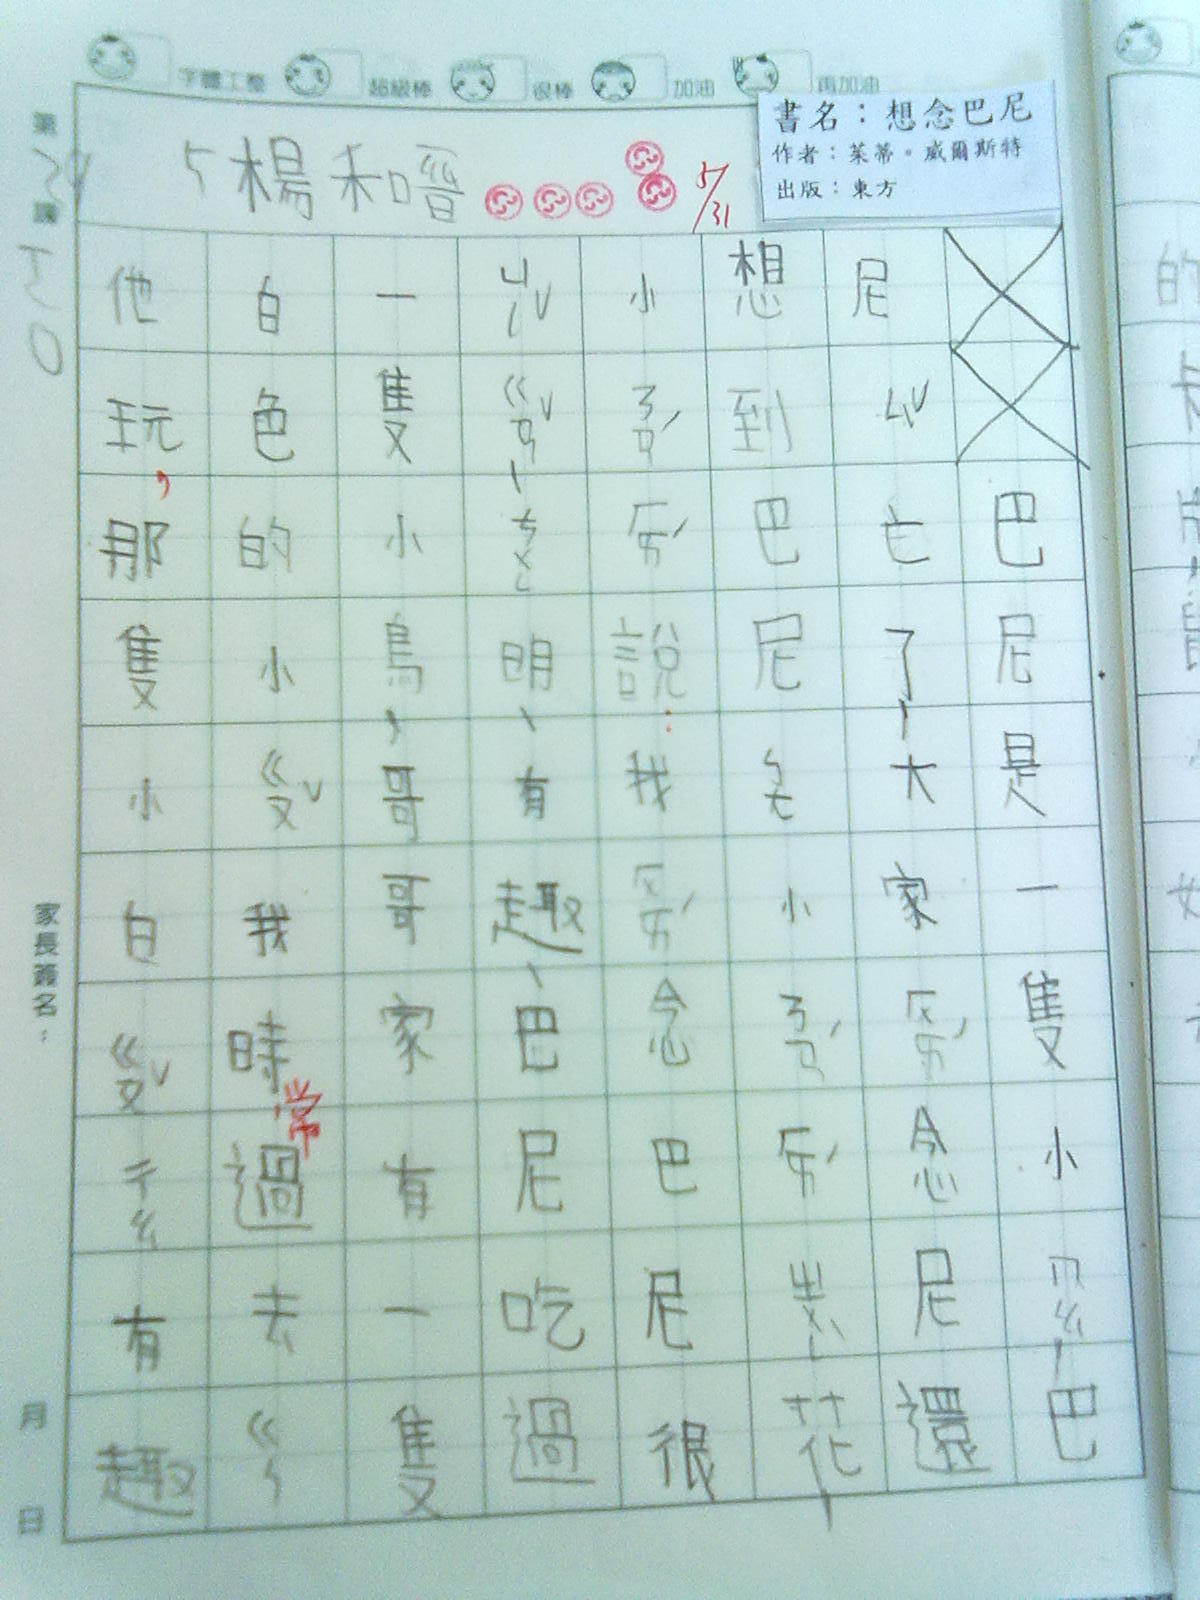 字體工整
超級棒
很棒
加油
再加油
書名：想念巴尼
作者：茱蒂。威爾斯特
出版：東方
5 楊和
5/31
巴尼是一隻小ㄇㄠ，巴
尼ㄙˇ亡了，大家ㄏㄞˊ念尼還
想到巴尼 小ㄋㄢˊㄏㄞˊ 花，
小ㄋㄢˊㄏㄞˊ說：我ㄏㄨㄞˊ念巴尼很
ㄍㄢˇ、明、有趣、巴尼吃過
一隻小鳥，哥哥家有一隻
白色的小ㄍㄡˇ我時常過去ㄍㄣ
他玩，那隻小白ㄍㄡˇㄔㄠ有趣
家長簽名：
月
日